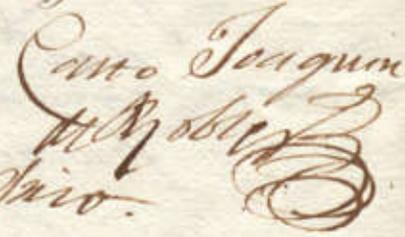 Casto Joaquin
de Robles